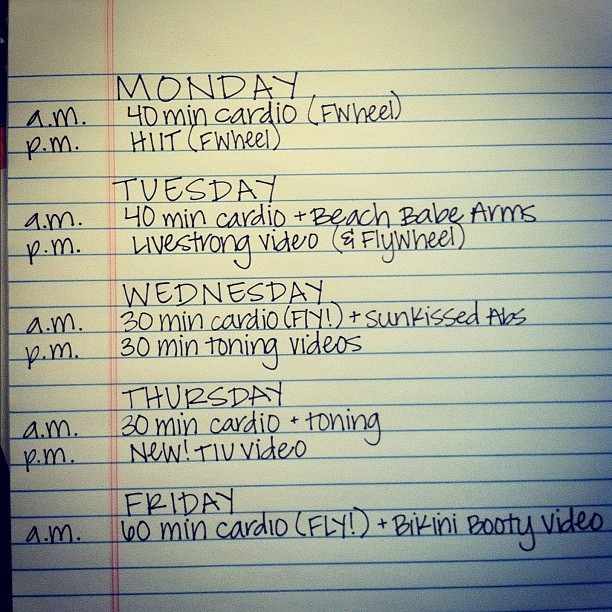 MONDAY
a.m. 40 min cardio (FWheel)
p.m. HIIT (FWheel)
TUESDAY
a.m. 40 min cardio + Beach Babe Arms
p.m. Livestrong video (& FlyWheel)
WEDNESDAY
a.m. 30 min cardio (FLY!) + Sunkissed Abs
p.m. 30 min toning videos
THURSDAY
a.m. 30 min cardio + toning
p.m. New! TIU video
FRIDAY
a.m. 60 min cardio (FLY!) + Bikini Booty video